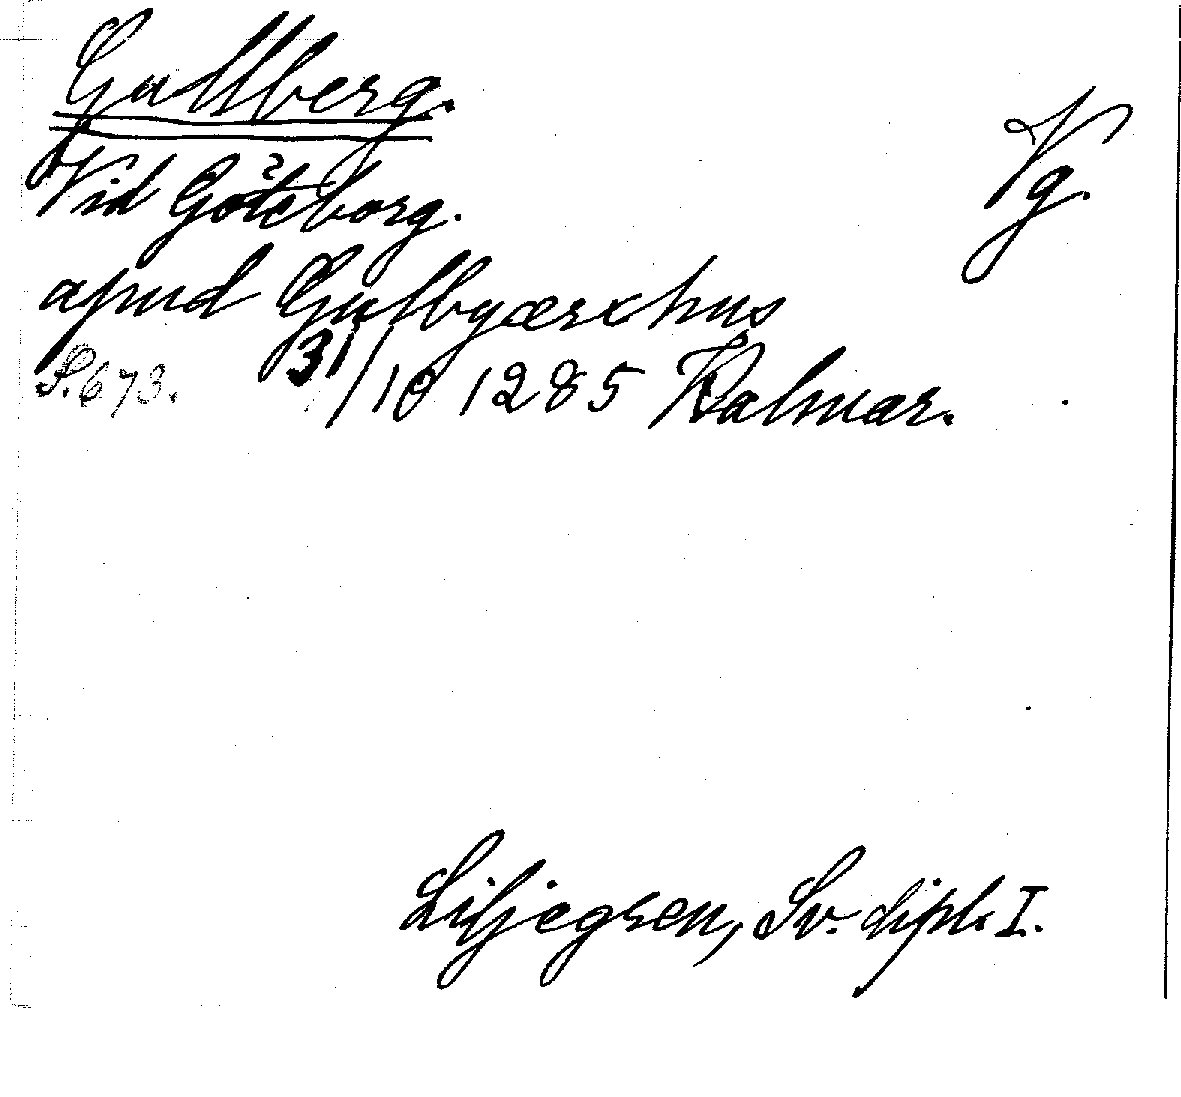 Gullberg.
Vg.
Vid Göteborg.
apud Gulbyærxhus
S. 673. 31/10 1285 Kalmar.
Liljegren, Sv. dipl. I.